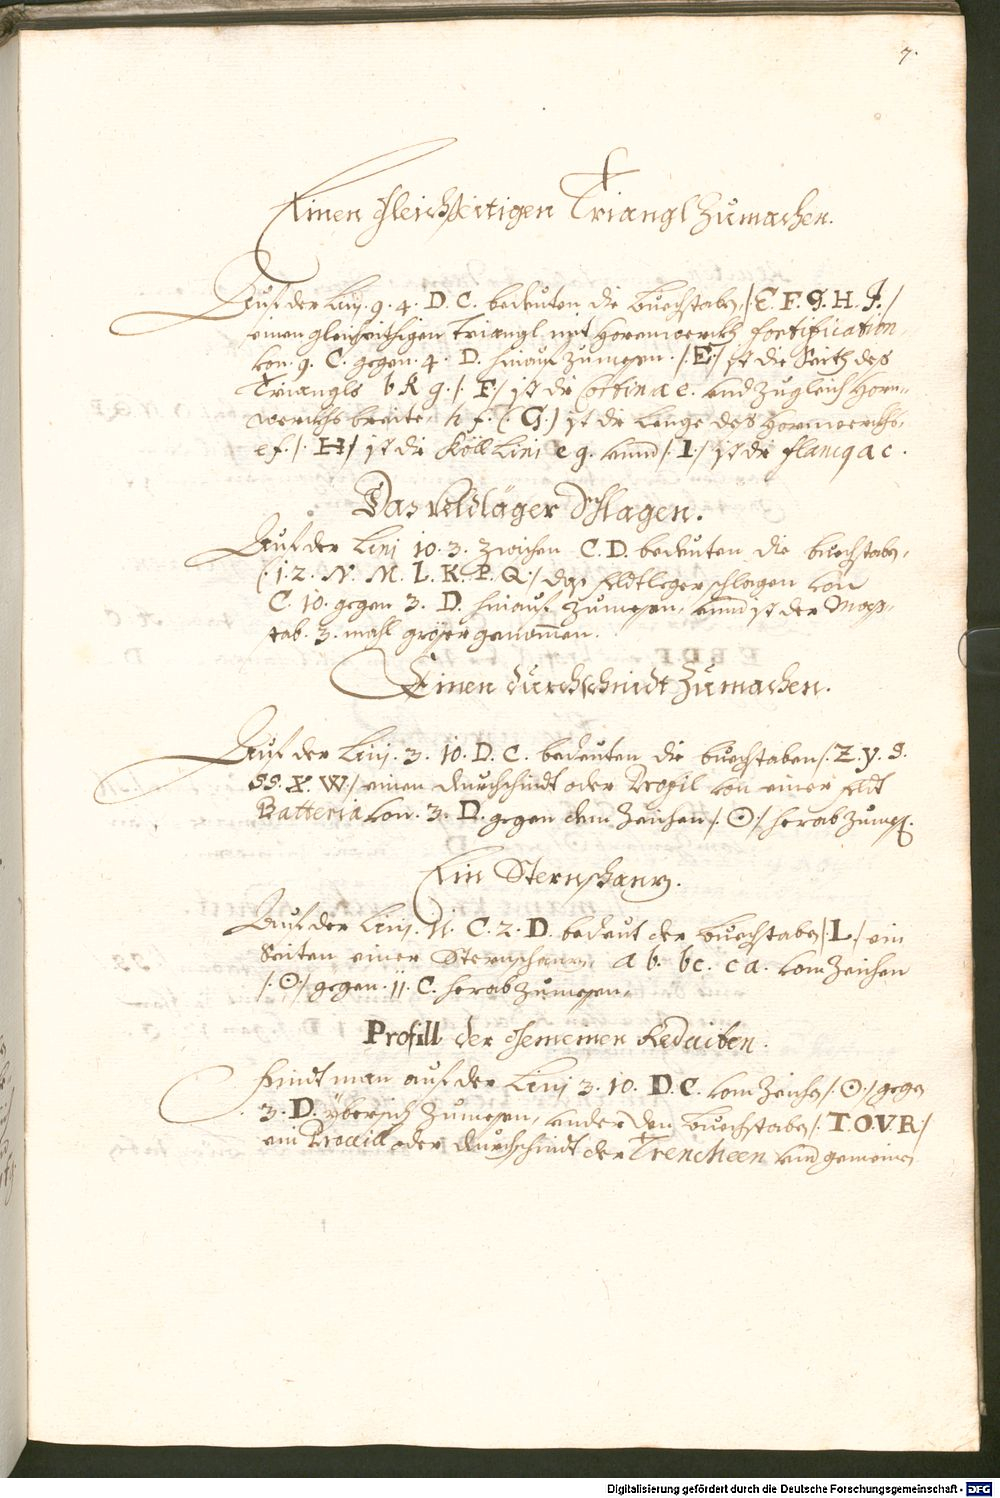 7.
Einen gleichseitigen Triangl Zumachen.
Auf der Linj. 9. 4. D. C. bedeuten die buechstaben /: E. F. G. H. I. /
einen gleichseithigen Triangl mit Hornwerckh fortification
von. 9. C. gegen. 4. D. hinauf zumessen. /: E / ist die Seith des
Triangls b k g. /: F / ist die cortina e. vnd zugleich Horn-
werckhs breite h f. /: G: / ist die lenge des Hornwerckhs.
e f. /: H / ist die Köll Linj e g. vnnd /: I: / ist die flancq a c.
Das veldläger Schlagen.
Auf der Linj 10. 3. zwischen C. D. bedeuten die buechstaben,
/: 1. 2. N. M. L. K. P. Q: / das feldtleger schlagen von
C. 10. gegen 3. D. hinauf zumessen, vnnd ist der Mass-
stab. 3. mahl grösser genommen.
Einen durchschnidt Zumachen.
Auf der Linj. 3. 10. D. C. bedeuten die buechstaben /: Z. y. S.
SS. X. W: / einen durchschnidt oder Propfil von einer feldt
Batteria von. 3. D. gegen dem Zeichen /: ⊙: / herab zumess.
Ein Sternschantz.
Auf der Linj. 11. C. 2. D. bedeut der buechstaben /: L / ein
Seiten einer Sternschantz, a b. b c. c a. vom Zeichen
/: ⊙: / gegen. 11. C. herab zumessen.
Profill der gemeinen Reduiten.
Findt man auf der Linj 3. 10. D. C. vom Zeichen /: ⊙: / gegen
3. D. übersich zumessen, vnder den buechstaben /: T. O. V. R /
ein Proffill oder durchschnidt der Trencheen vnd gemeinen
Digitalisierung gefördert durch die Deutsche Forschungsgemeinschaft - DFG